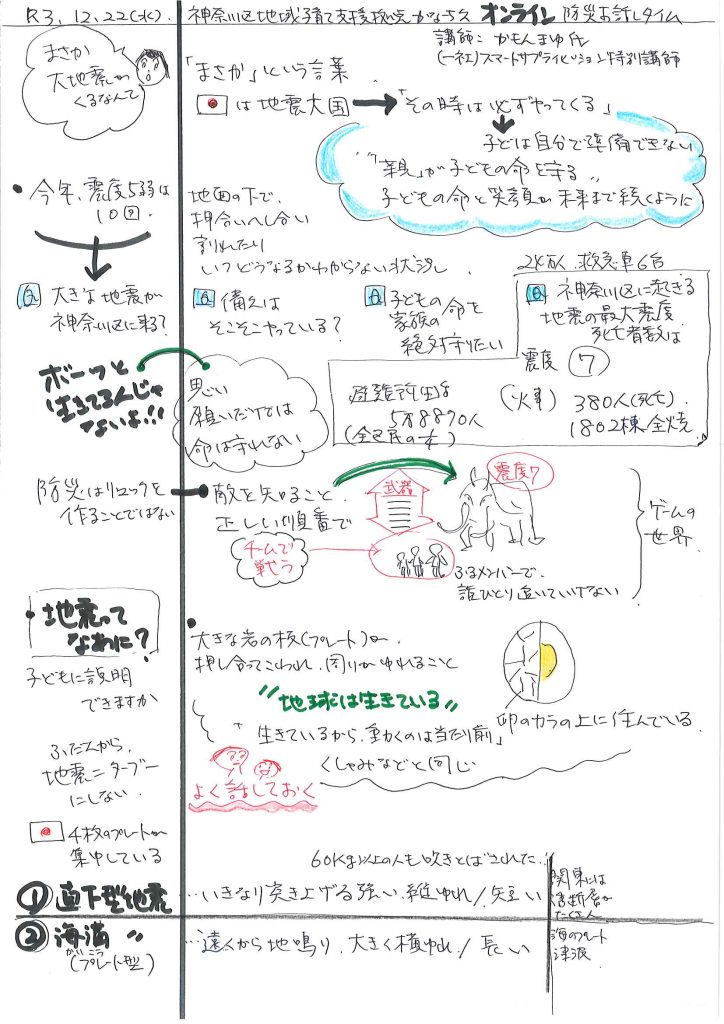 R3.12.22(水).
神奈川区地域子育て支援拠点かなーちえ オンライン 防災お話しタイム
講師：かもんまゆ氏
(一社)スマートサプライビジョン特別講師
まさか
大地震が
くるなんて
「まさか」という言葉
は地震大国
「その時は必ずやってくる」
子どもは自分で準備できない
"「親」が子どもの命を守る"
子どもの命と笑顔が未来まで続くように
• 今年、震度5弱は
10回.
地面の下で、
押合いへし合い
割れたり
いつどうなるかわからない状況
Q 大きな地震が
神奈川区に来る?
Q 備えは
そこそこやっている?
Q 子どもの
家族の命を
絶対守りたい
24万人 救急車6台
Q 神奈川区に起きる
地震の最大震度
死亡者数は
震度 7
避難所生活
5万8890人
(全区民の
(火事) 380人(死亡)
1802棟全焼
ボーッと
生きてる人じゃ
ないよ!!
思い
願いだけでは
命は守れない
防災はリュックを
作ることではない
敵を知ること、
正しい順番で
武器
震度7
チームで
戦う
ゲームの
世界
いるメンバーで、
誰ひとり置いていけない
• 地震って
なあに?
子どもに説明
できますか
• 大きな岩の板(プレート)が、
押し合ってこわれ、周りがゆれること
"地球は生きている"
「生きているから、動くのは当たり前」
くしゃみなどと同じ
卵のカラの上に住んでいる.
ふだんから、
地震=タブー
にしない.
よく話しておく
4枚のプレートが
集中している
60Kg以上の人も吹きとばされた..
① 直下型地震
…いきなり突き上げる強い、縦ゆれ/短い
関東には
活断層が
たくさん
② 海溝 〃
かいこう
(プレート型)
…遠くから地鳴り、大きく横ゆれ/長い
海のプレート
津波